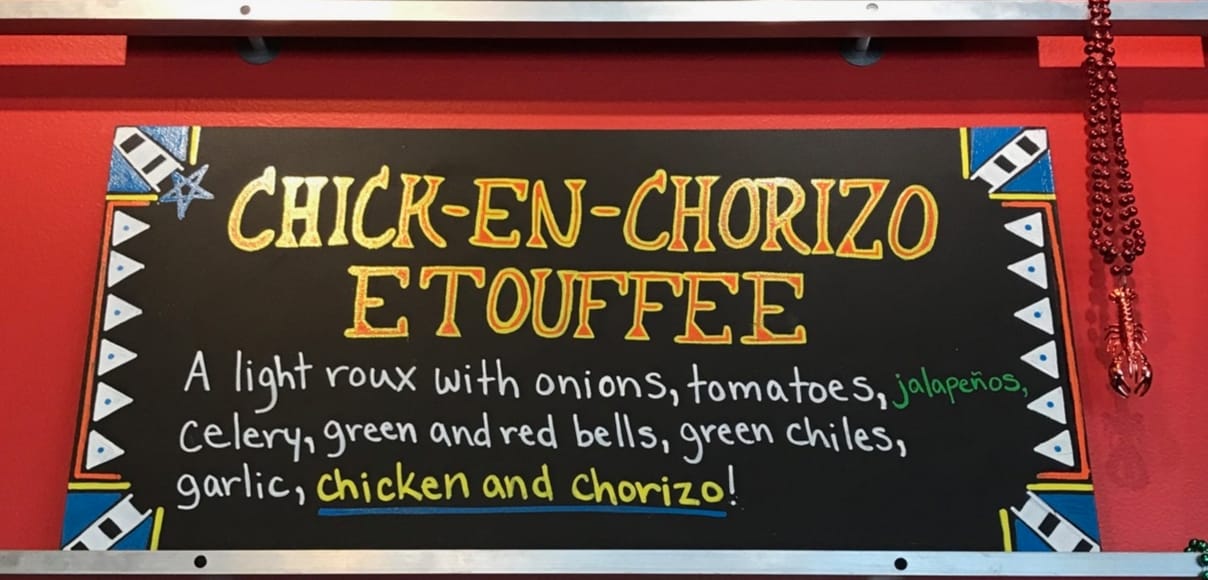 CHICK-EN-CHORIZO
ETOUFFEE
A light roux with onions, tomatoes, jalapeños,
celery, green and red bells, green chiles,
garlic, chicken and chorizo!